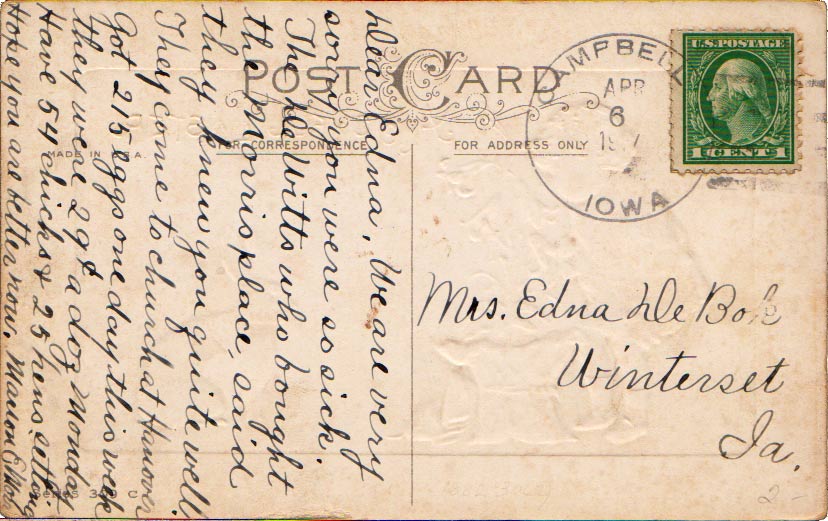 POST CARD
FOR CORRESPONDENCE
FOR ADDRESS ONLY
MADE IN U.S.A.
Series 340 C
CAMPBELL
APR
6
IOWA
U.S. POSTAGE
1 CENT 1
Dear Edna, We are very
sorry you were so sick.
The De Witts who bought
the Morris place, said
they knew you quite well
They come to church at Hanover
Got 215 eggs one day this week
they were 29¢ a doz Monday
Have 54 chicks & 25 hens setting
Hope you are better now. Marion &
Mrs. Edna De Bok
Winterset
Ia.
2-